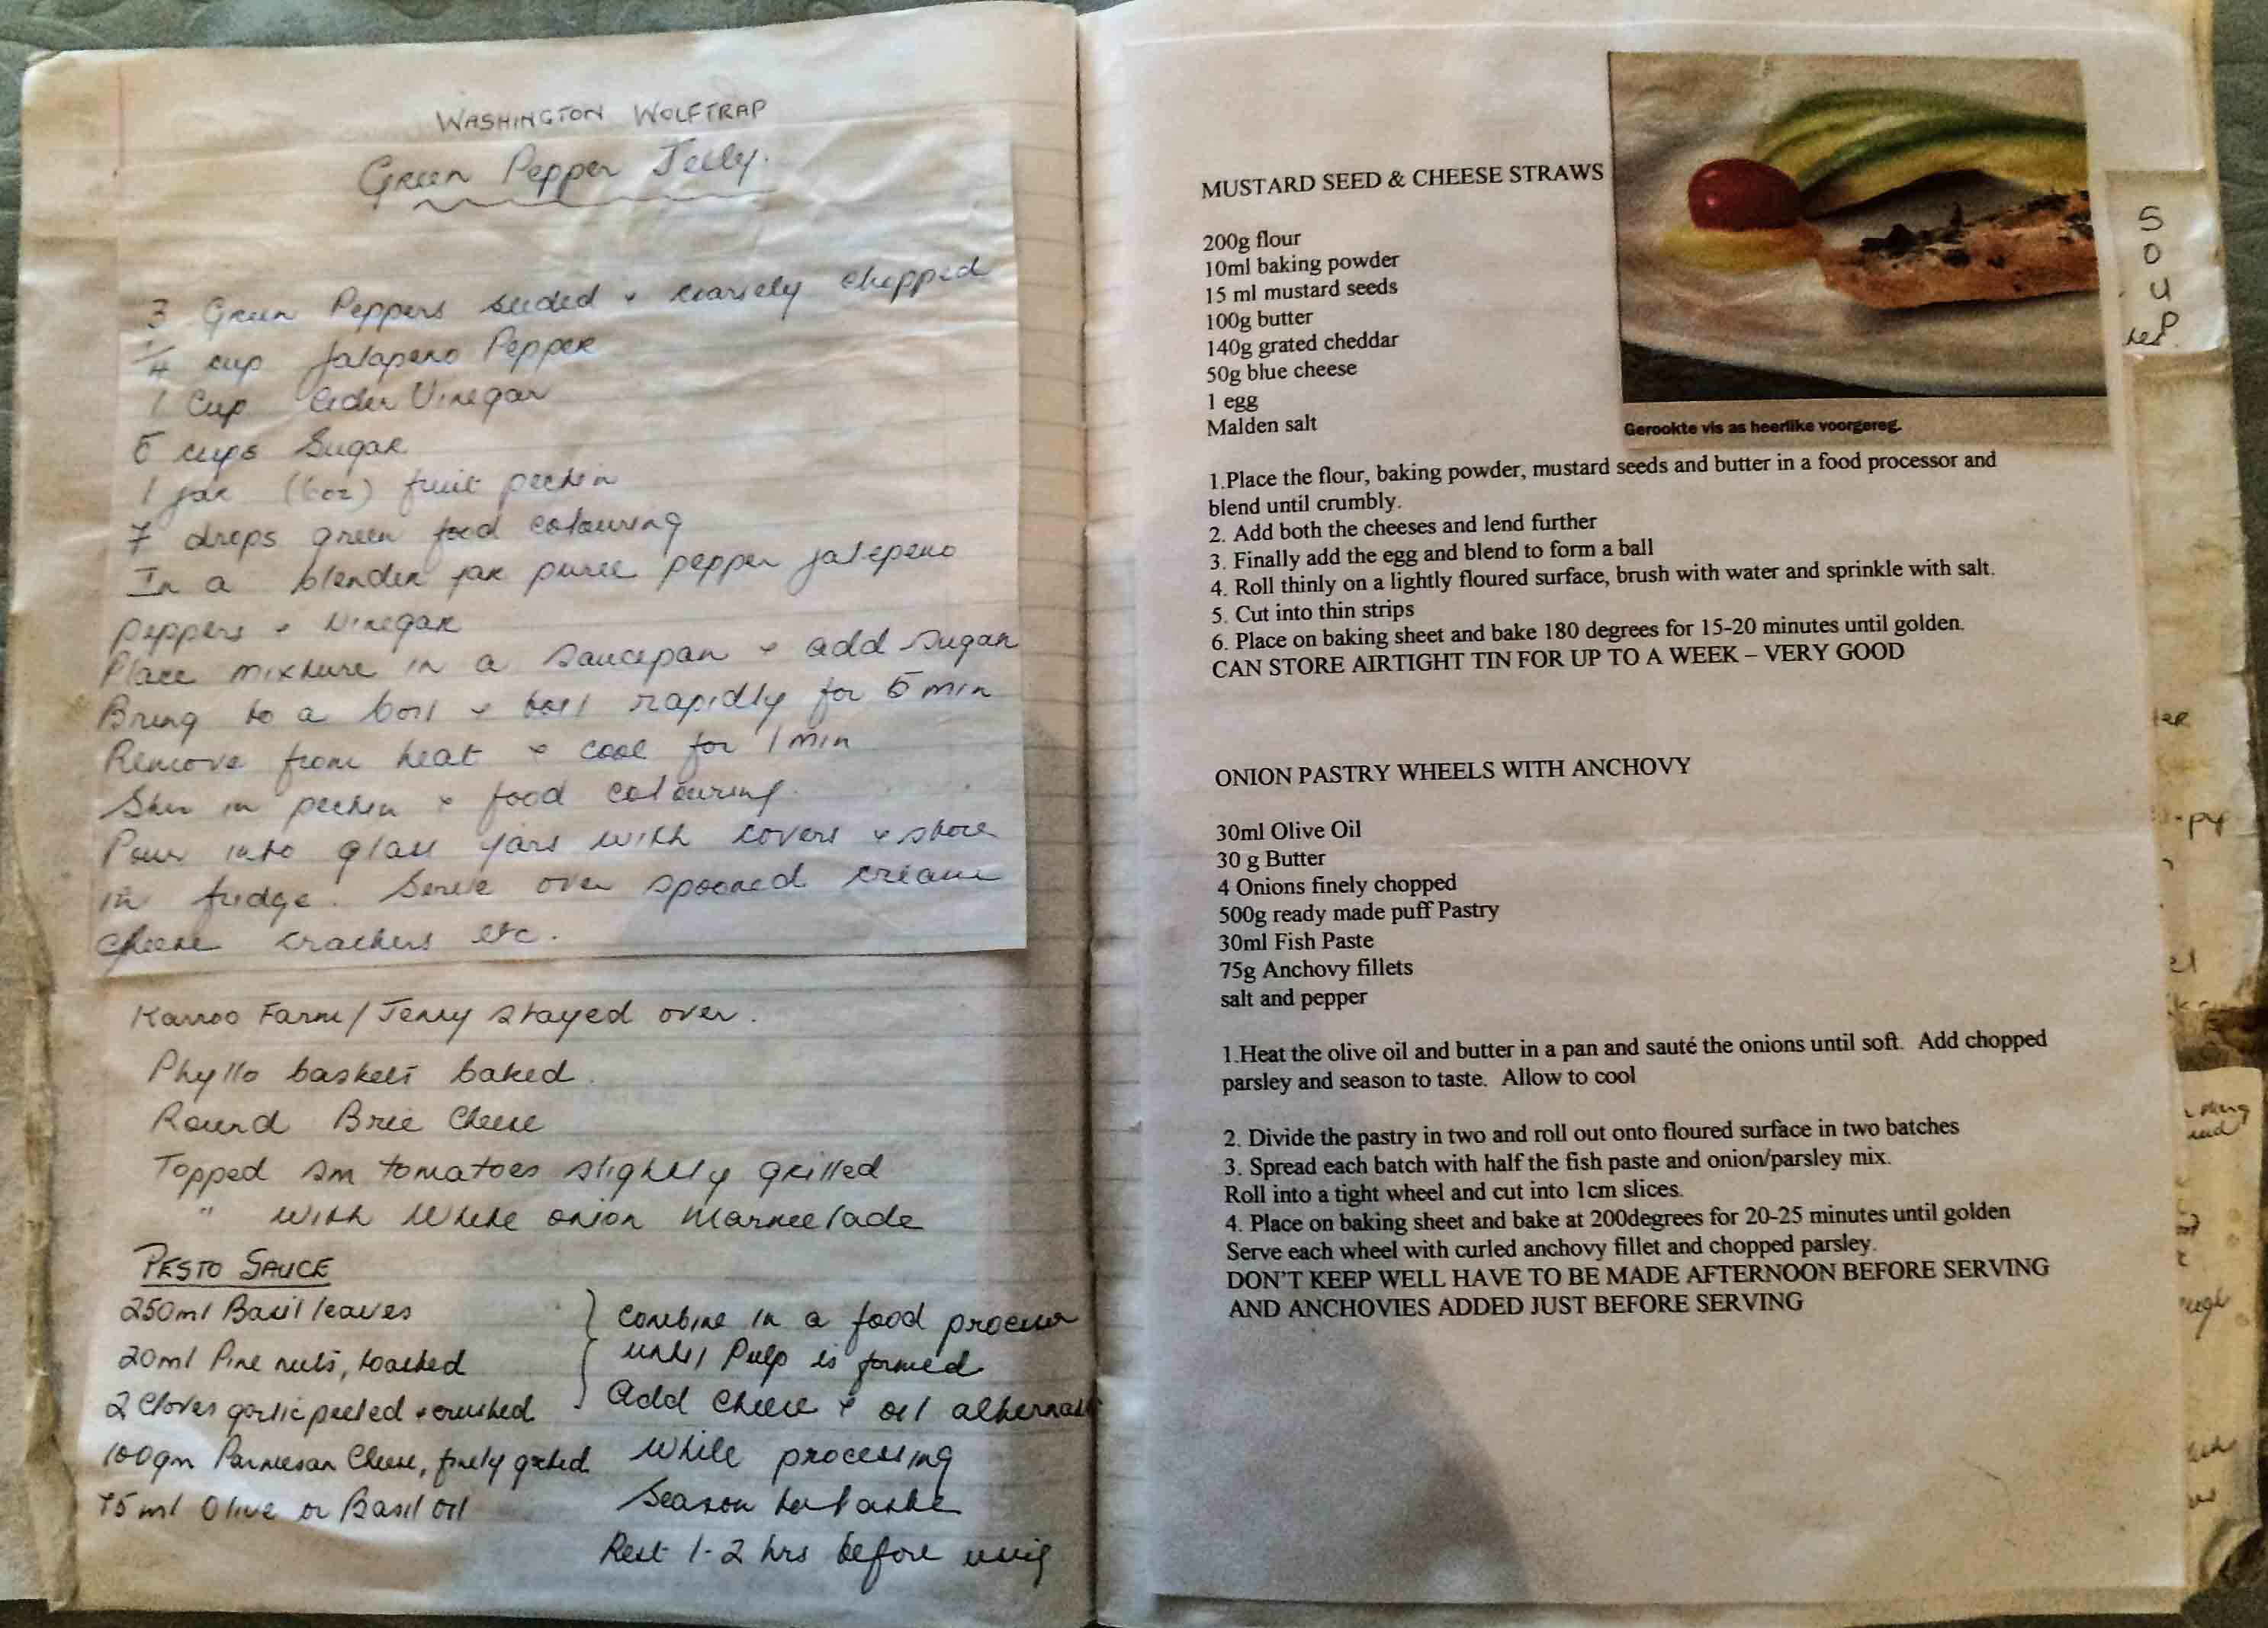 WASHINGTON WOLFTRAP
Green Pepper Jelly.
3 Green Peppers seeded + coarsely chopped
1/4 cup Jalapeno Pepper
1 Cup Cider Vinegar
5 cups Sugar
1 jar (6oz) fruit pectin
7 drops green food colouring
In a blender jar puree pepper jalepeno
peppers + Vinegar
Place mixture in a saucepan + add sugar
Bring to a boil + boil rapidly for 5 min
Remove from heat + cool for 1 min
Stir in pectin + food colouring.
Pour into glass jars with covers + store
in fridge. Serve over spooned cream
cheese crackers etc.
Karroo Farm/Jenny stayed over.
Phyllo baskets baked.
Round Brie Cheese
Topped sm tomatoes slightly grilled
" with White onion Marmelade
PESTO SAUCE
250ml Basil leaves
20ml Pine nuts, toasted
2 Cloves garlic peeled + crushed
100gm Parmesan Cheese, finely grated
75ml Olive or Basil oil
Combine in a food processor
until Pulp is formed
Add Cheese + oil alternate
While processing
Season to taste
Rest 1-2 hrs before using
MUSTARD SEED & CHEESE STRAWS
200g flour
10ml baking powder
15 ml mustard seeds
100g butter
140g grated cheddar
50g blue cheese
1 egg
Malden salt
Gerookte vis as heerlike voorgereg.
1.Place the flour, baking powder, mustard seeds and butter in a food processor and
blend until crumbly.
2. Add both the cheeses and lend further
3. Finally add the egg and blend to form a ball
4. Roll thinly on a lightly floured surface, brush with water and sprinkle with salt.
5. Cut into thin strips
6. Place on baking sheet and bake 180 degrees for 15-20 minutes until golden.
CAN STORE AIRTIGHT TIN FOR UP TO A WEEK – VERY GOOD
ONION PASTRY WHEELS WITH ANCHOVY
30ml Olive Oil
30 g Butter
4 Onions finely chopped
500g ready made puff Pastry
30ml Fish Paste
75g Anchovy fillets
salt and pepper
1.Heat the olive oil and butter in a pan and sauté the onions until soft. Add chopped
parsley and season to taste. Allow to cool
2. Divide the pastry in two and roll out onto floured surface in two batches
3. Spread each batch with half the fish paste and onion/parsley mix.
Roll into a tight wheel and cut into 1cm slices.
4. Place on baking sheet and bake at 200degrees for 20-25 minutes until golden
Serve each wheel with curled anchovy fillet and chopped parsley.
DON'T KEEP WELL HAVE TO BE MADE AFTERNOON BEFORE SERVING
AND ANCHOVIES ADDED JUST BEFORE SERVING
S
O
U
P